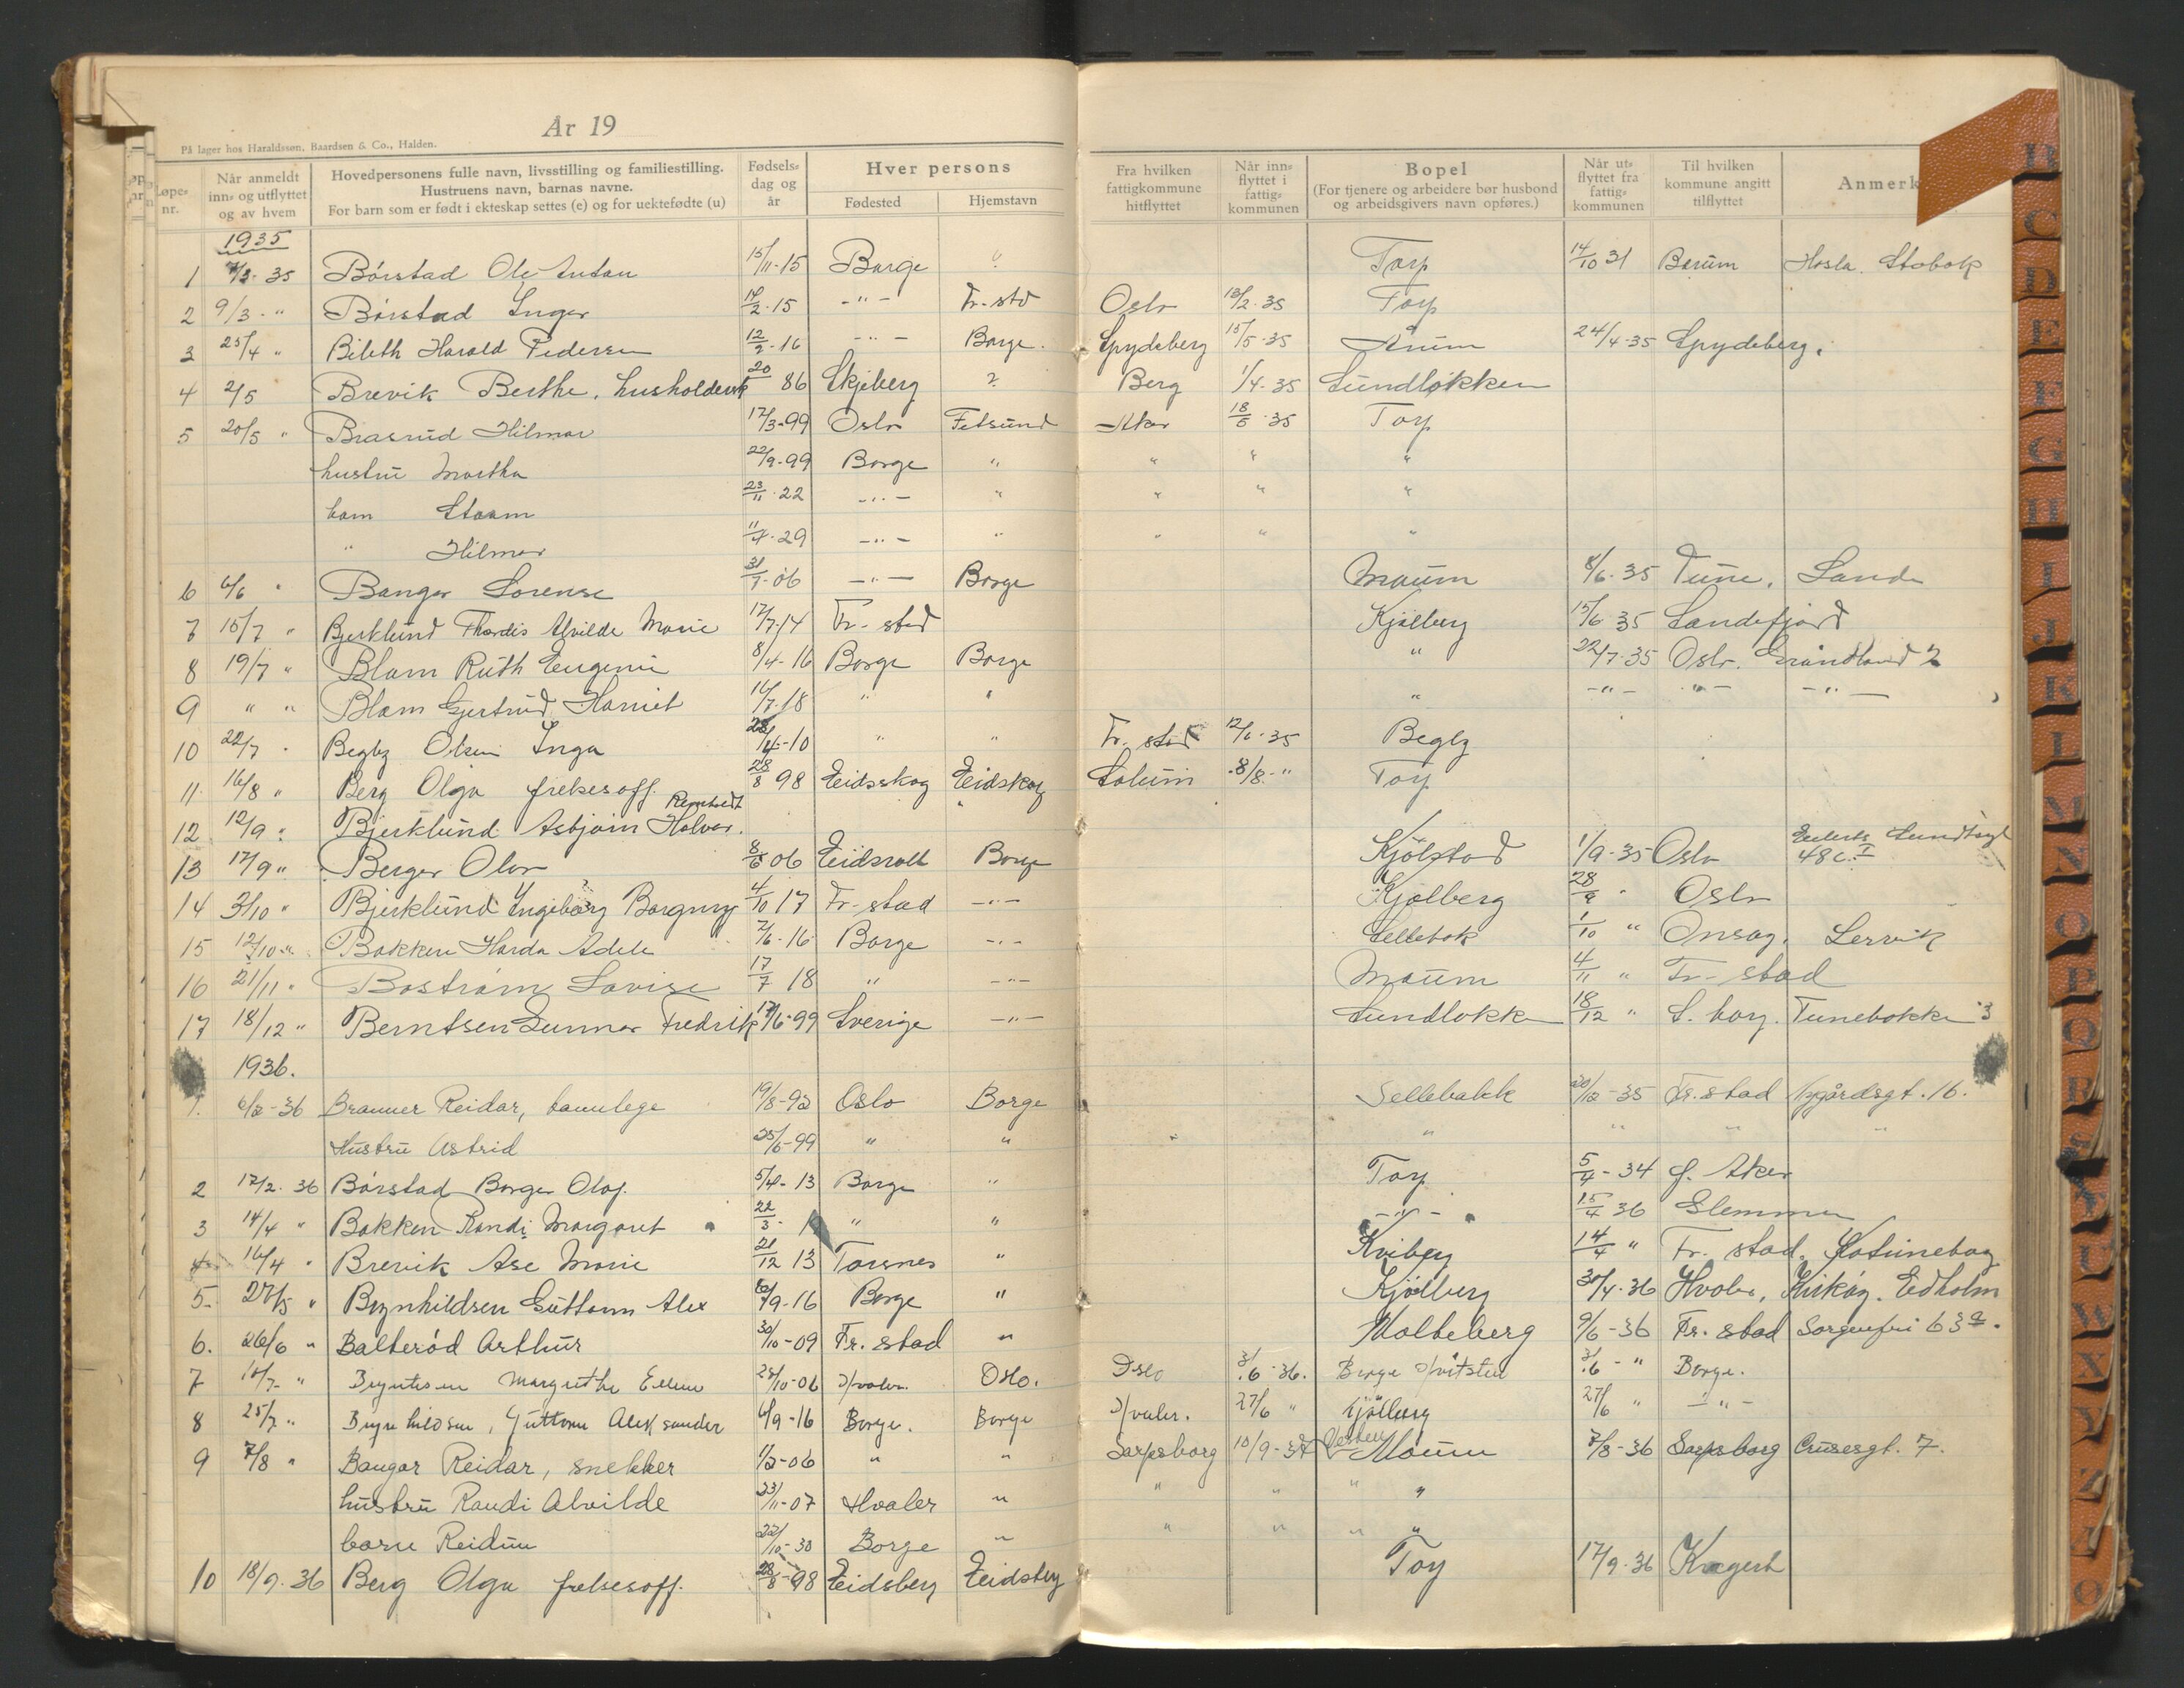 År 19
På lager hos Haraldssøn, Baardsen & Co., Halden.
Løpe-nr. | Når anmeldt inn- og utflyttet og av hvem | Hovedpersonens fulle navn, livsstilling og familiestilling. Hustruens navn, barnas navne. For barn som er født i ekteskap settes (e) og for uektefødte (u) | Fødsels-dag og år | Hver persons Fødested | Hjemstavn | Fra hvilken fattigkommune hitflyttet | Når inn-flyttet i fattig-kommunen | Bopel (For tjenere og arbeidere bør husbond og arbeidsgivers navn opføres.) | Når ut-flyttet fra fattig-kommunen | Til hvilken kommune angitt tilflyttet | Anmerk
1935
1 7/2-35 Børstad Ole Antan 15/11-15 Borge " Torp 14/10 31 Bærum Hosla. Stabæk
2 9/3-" Børstad Inger 14/2-15 -"- Fr-std Oslo 13/2-35 Torp
3 25/4 " Bileth Harald Pedersen 12/2-16 -"- Borge. Spydeberg 15/5-35 Årum 24/4-35 Spydeberg.
4 2/5 Brevik Berthe, husholdersk 20/ 86 Skjeberg ? Berg 1/4-35 Lundløkken
5 20/5 " Braarud Hilmar 17/3-99 Oslo Fetsund Aker 18/5-35 Torp
hustru Martha 22/9-99 Borge " " " "
barn 23/11-22 -"- " " " "
" Hilmar 11/4-29 -"- " " " "
6 6/6 " Bangar Lorense 31/7-06 -"- Borge Moum 8/6-35 Tune. Sande
7 15/7 " Bjerklund Thordis Alvilde Marie 17/7-14 Fr-stad Kjølberg 15/6-35 Sandefjord
8 19/7 " Blom Ruth Eugenie 8/4-16 Borge Borge " 22/7-35 Oslo. Grønland 2
9 " " Blom Gjertrud Harriet 16/7-18 " " " -"- -"- -"-
10 22/7 " Begby Olsen Inga 28/4-10 " " Fr. stad 12/6-35 Begby
11 16/8 " Berg Olga frelsesoff. 28/8 98 Eidsskog Eidskog Solum 8/8-" Torp
12 12/9 " Bjerklund Asbjørn Halvor Reinholdt
13 17/9 " Berger Olav 8/6 06 Eidsvoll Borge Kjølstad 1/9-35 Oslo Eilerts Sundtsgt 48 c. I
14 3/10 " Bjerklund Ingeborg Borgny 4/10 17 Fr-stad -"- Kjølberg 28/9 " Oslo
15 12/10 " Bakken Harda Adele 2/6-16 Borge -"- Sellebak 1/10 " Onsøy. Lervik
16 21/11 " Bostrøm Lovise 17/7 18 " -"- Moum 4/11 " Fr-stad
17 18/12 " Berntsen Gunnar Fredrik 17/6-99 Sverige -"- Lundløkke 18/12 " S. borg. Tunebakke 3
1936.
1. 6/2-36 Branner Reidar, tannlege 19/8-92 Oslo Borge Sellebakk 20/12-35 Fr. stad Nygårdsgt. 16.
Hustru Astrid 25/5-99 " " " " " "
2 17/2-36 Børstad Borger Olaf. 5/4-13 Borge " Torp 5/4-34 Ø. Aker
3 14/4 " Bakken Randi Margaret 22/3- " " -"- 15/4 36 Glemmen
4 16/4 " Brevik Åse Marie 21/12 13 Torsnes " Kviberg 14/4 " Fr. stad.
5 27/5 " Brynhildsen Guttorm Alex 6/9-16 Borge " Kjølberg 30/4-36 Hvaler, Kirkøy. Edholm
6. 26/6 " Balterød Arthur 30/10-09 Fr. stad " Molteberg 9/6-36 Fr. stad Sorgenfri 63 a.
7 14/7 " Bryntesen Margrethe Ellen 28/10-06 Hvaler. Oslo. Oslo 3/6-36. Borge Hvitsten 3/6-" Borge.
8 25/7 " Brynhildsen, Guttorm Aleksander 6/9-16 Borge. Borge Hvaler. 27/6 " Kjølberg 27/6 " -"-
9 7/8 " Baugar Reidar, snekker 1/2-06 " " Sarpsborg 10/9-34 Vesten Moum 7/8-36 Sarpsborg Crusesgt. 7.
hustru Randi Alvilde 23/11-07 Hvaler " " " " "
barn Reidun 22/10-30 Borge " " " " "
10 18/9-36 Berg Olga frelsesoff. 28/8-98 Eidsberg Eidsberg Torp 17/9-36 Kragerø